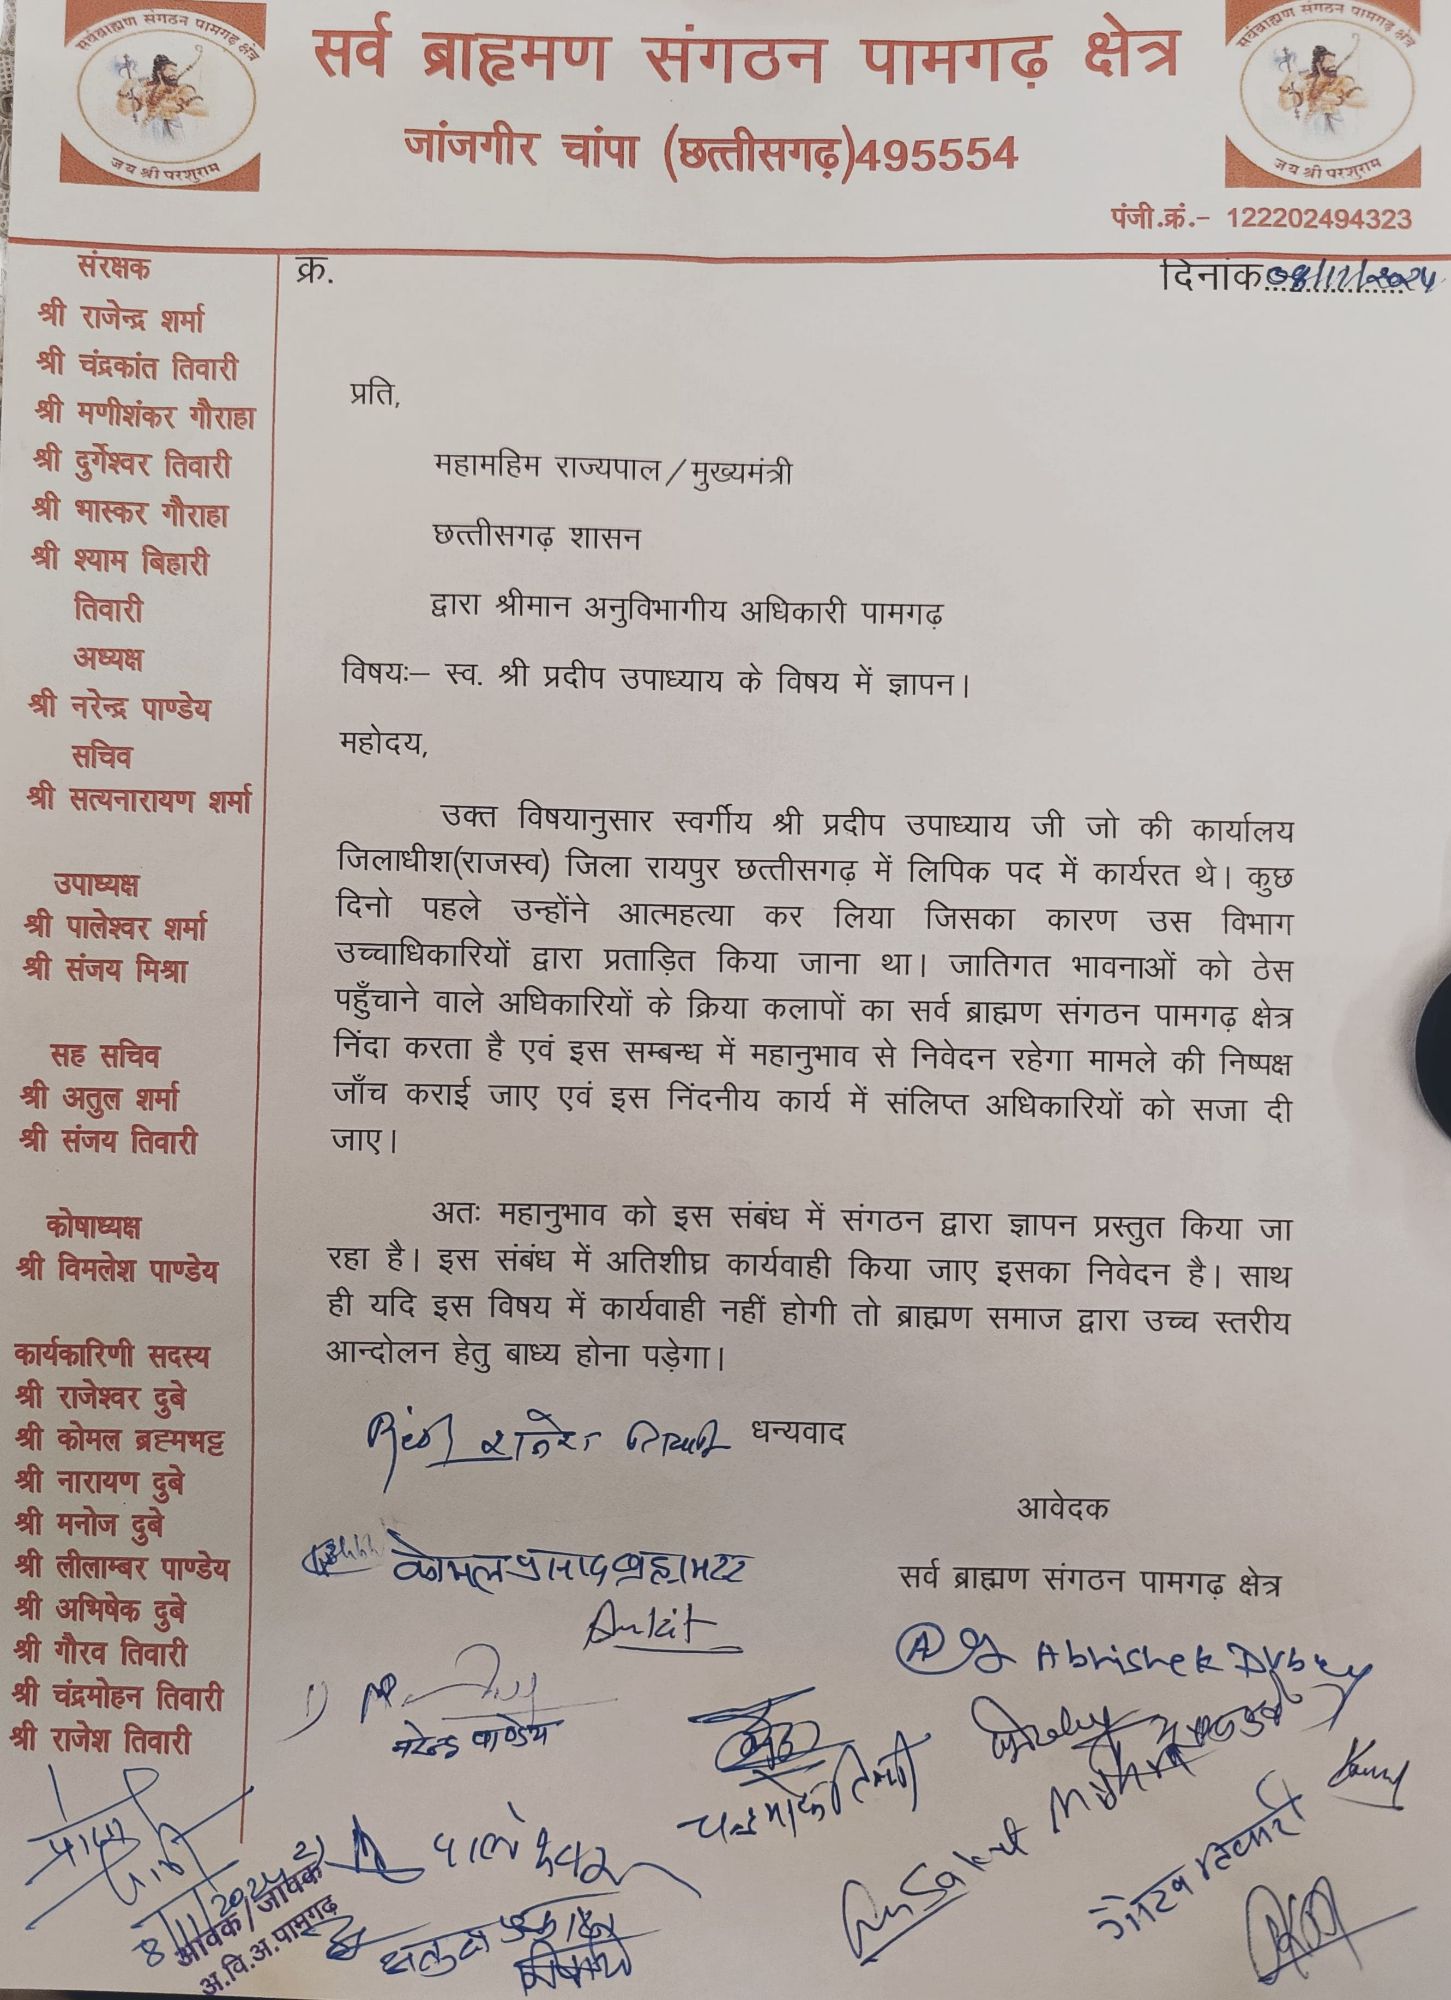 सर्वब्राह्मण संगठन पामगढ़ क्षेत्र
जय श्री परशुराम
सर्व ब्राह्मण संगठन पामगढ़ क्षेत्र
जांजगीर चांपा (छत्तीसगढ़)495554
सर्वब्राह्मण संगठन पामगढ़ क्षेत्र
जय श्री परशुराम
पंजी.क्रं.- 122202494323
संरक्षक
श्री राजेन्द्र शर्मा
श्री चंद्रकांत तिवारी
श्री मणीशंकर गौराहा
श्री दुर्गेश्वर तिवारी
श्री भास्कर गौराहा
श्री श्याम बिहारी
तिवारी
अध्यक्ष
श्री नरेन्द्र पाण्डेय
सचिव
श्री सत्यनारायण शर्मा
उपाध्यक्ष
श्री पालेश्वर शर्मा
श्री संजय मिश्रा
सह सचिव
श्री अतुल शर्मा
श्री संजय तिवारी
कोषाध्यक्ष
श्री विमलेश पाण्डेय
कार्यकारिणी सदस्य
श्री राजेश्वर दुबे
श्री कोमल ब्रह्मभट्ट
श्री नारायण दुबे
श्री मनोज दुबे
श्री लीलाम्बर पाण्डेय
श्री अभिषेक दुबे
श्री गौरव तिवारी
श्री चंद्रमोहन तिवारी
श्री राजेश तिवारी
क्र.
दिनांक 08/11/2024
प्रति,
महामहिम राज्यपाल/मुख्यमंत्री
छत्तीसगढ़ शासन
द्वारा श्रीमान अनुविभागीय अधिकारी पामगढ़
विषयः– स्व. श्री प्रदीप उपाध्याय के विषय में ज्ञापन।
महोदय,
उक्त विषयानुसार स्वर्गीय श्री प्रदीप उपाध्याय जी जो की कार्यालय
जिलाधीश(राजस्व) जिला रायपुर छत्तीसगढ़ में लिपिक पद में कार्यरत थे। कुछ
दिनो पहले उन्होंने आत्महत्या कर लिया जिसका कारण उस विभाग
उच्चाधिकारियों द्वारा प्रताड़ित किया जाना था। जातिगत भावनाओं को ठेस
पहुँचाने वाले अधिकारियों के क्रिया कलापों का सर्व ब्राह्मण संगठन पामगढ़ क्षेत्र
निंदा करता है एवं इस सम्बन्ध में महानुभाव से निवेदन रहेगा मामले की निष्पक्ष
जाँच कराई जाए एवं इस निंदनीय कार्य में संलिप्त अधिकारियों को सजा दी
जाए।
अतः महानुभाव को इस संबंध में संगठन द्वारा ज्ञापन प्रस्तुत किया जा
रहा है। इस संबंध में अतिशीघ्र कार्यवाही किया जाए इसका निवेदन है। साथ
ही यदि इस विषय में कार्यवाही नहीं होगी तो ब्राह्मण समाज द्वारा उच्च स्तरीय
आन्दोलन हेतु बाध्य होना पड़ेगा।
धन्यवाद
आवेदक
सर्व ब्राह्मण संगठन पामगढ़ क्षेत्र
कोमल प्रसाद ब्रह्मभट्ट
Ankit
Abhishek Dubey
नरेन्द्र पाण्डेय
गौरव तिवारी
पालेश्वर
8/11/2024
आवक/जावक
अ.वि.अ.पामगढ़